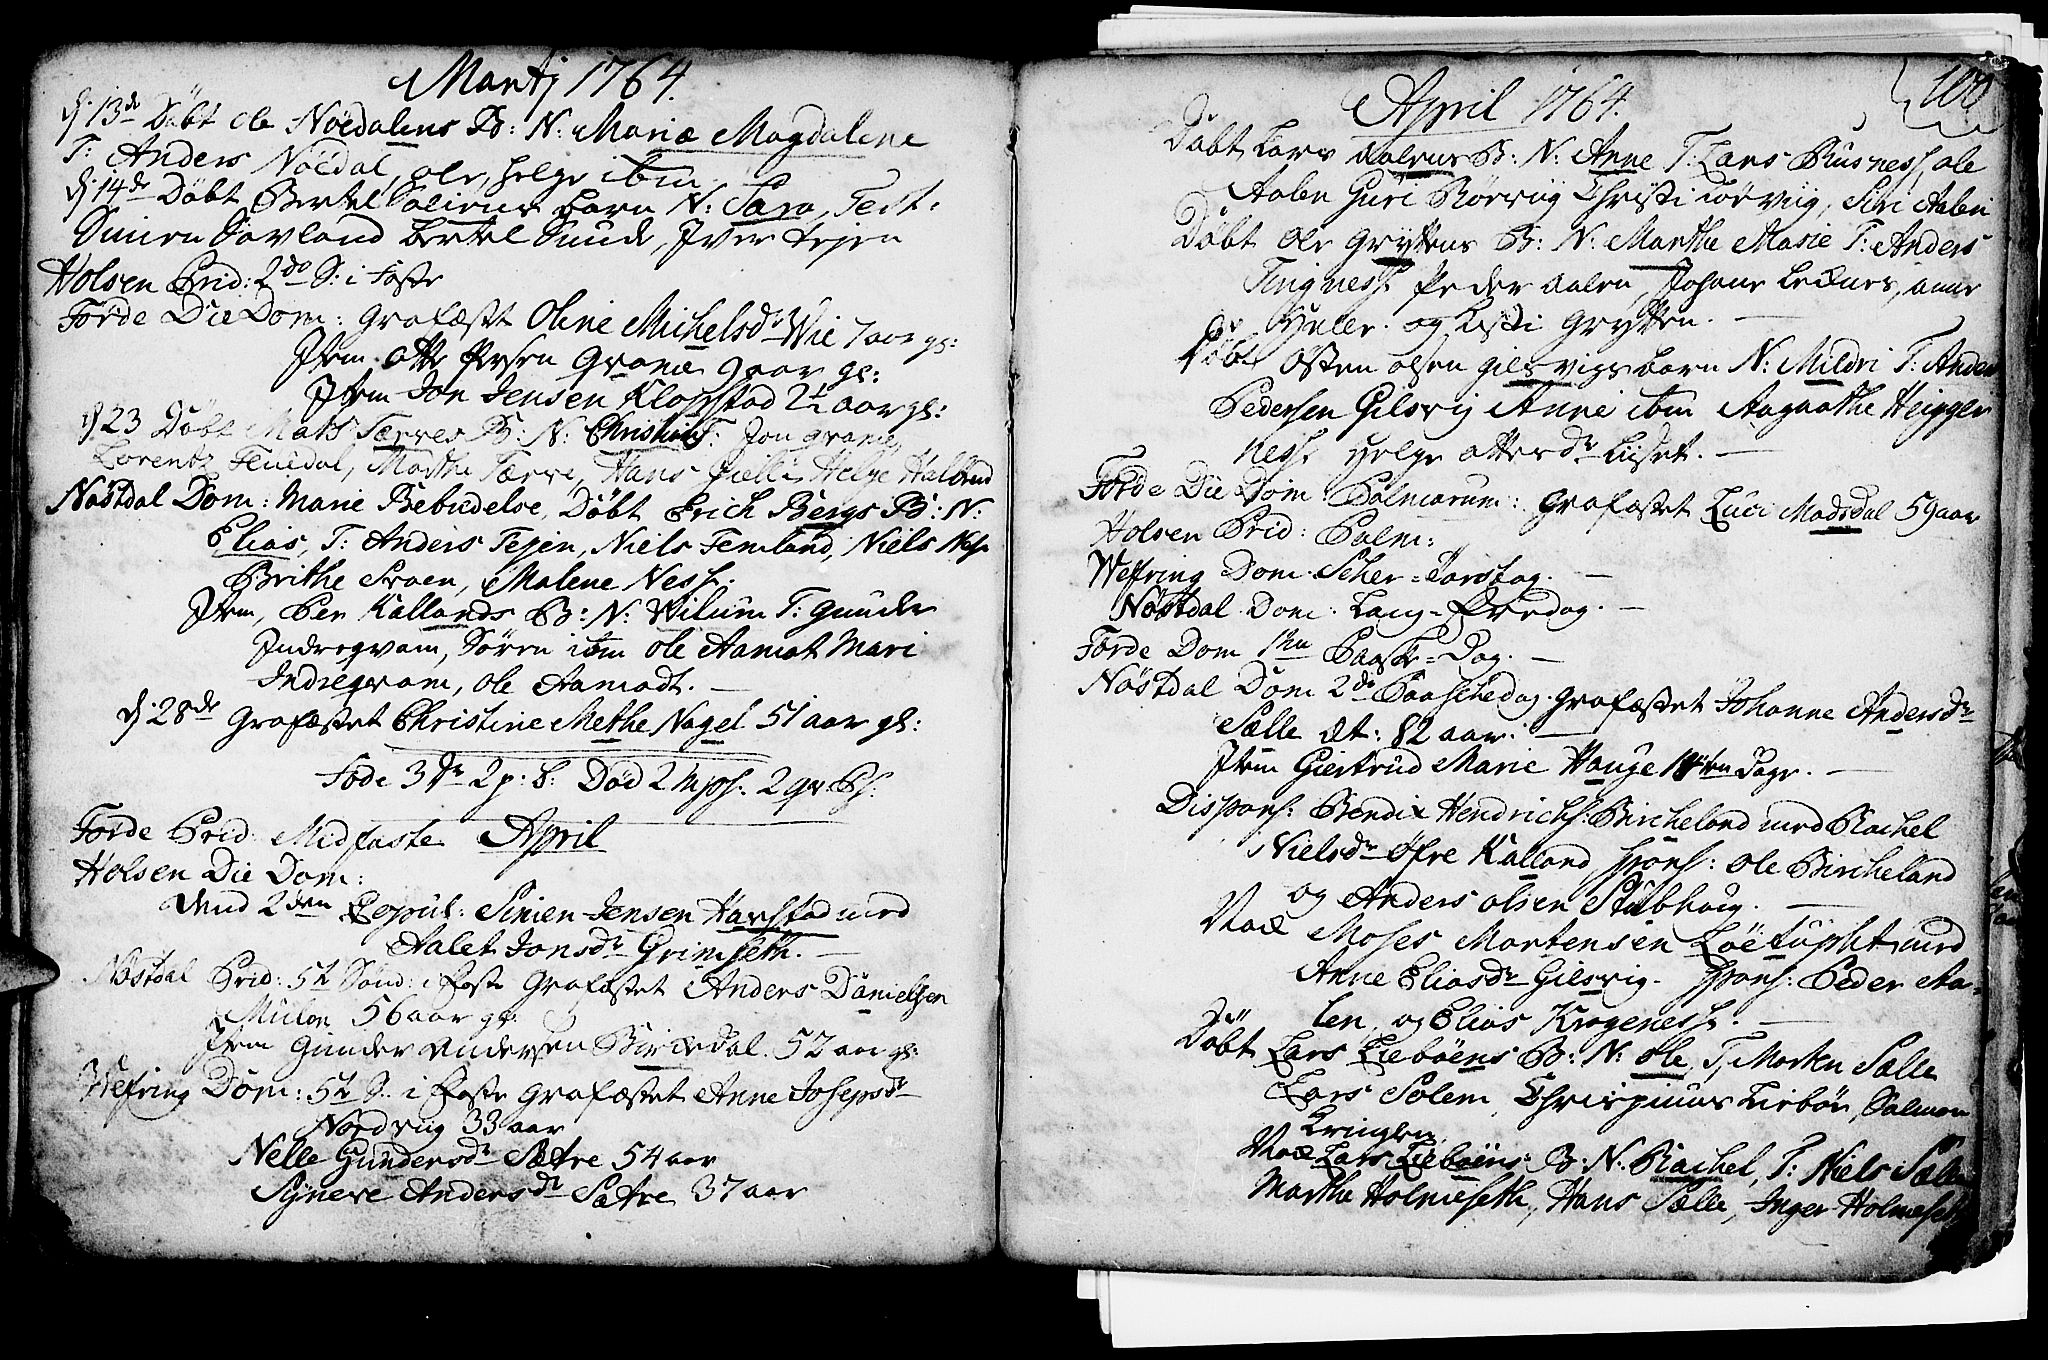 Martj 1764.
d. 13de Döbt Ole Nöedalens B: N: Mariæ Magdalene
T: Anders Nöedal, Ole, Helge ibm.
d. 14de Döbt Bertel Barn N: Sara, Test:
Simen Savland Bertel Sunde, Iver Tefen
Holsen Prid: 2do S: i Faste
Förde Die Dom: Grafæstet Oline Michelsdr Wie 7 aar gl:
Item Otte Persen Grane 9 aar gl:
Item Jon Jensen Klopstad 2½ aar gl:
d. 23 Döbt Mats Færres B: N: Christine T: Jon Grane,
Lorentz Fenedal, Marthe Færre, Hans Helge Halland
Nöstdal Dom: Mariæ Bebudelse, Döbt Erich Bergs B: N:
Elias, T: Anders Tefen, Niels Femeland, Niels Ness
Brithe Svoen, Malene Ness.
Item, Per Kallands B: N: Wilum T: Gunder
Indregvam, Sören ibm Ole Aamot Mari
Indregvam, Ole Aamodt. —
d. 28de Grafæstet Christine Methe Nagel 51 aar gl:
Föde 3 dr 2 p: b: Död 2 2 qv. Ps:
Förde Prid: Midfaste April
Holsen Die Dom:
Dend 2den Copul: Simen Jensen Harstad med
Aalet Jonsdr Grimseth. —
Nöstdal Prid: 5t Sönd: i Faste Grafæstet Anders Danielsen
Mulen 56 aar gl:
Item Gunder Andersen Birkedal 52 aar gl:
Wefring Dom: 5t S: i Faste Grafæstet Anne Josepsdr
Nordviig 33 aar
Nelle Gundersdr Sætre 54 aar
Synere Andersdr Sætre 37 aar
100
April 1764.
Döbt Lars Aalens B: N: Anne T: Lars Husness, Ole
Aalen Guri Rörviig Christi Rörviig, Siri Aalen
Döbt Ole Gryttens B: N: Marthe Marie T: Anders
Tingness Peder Aalen, Johane Lexnes, Anne
Helle. og Kisti Grytten. —
Döbt Osten Olsen Gilsvigs Barn N: Mildri T: Anders
Pedersen Gilsvig Anne ibm Aagaathe Heggle
ness Helge Ottersdr Liset. —
Förde Die Dom Palmarum: Grafæstet Luci Madsdal 59 aar
Holsen Prid: Palm:
Wefring Dom. Skier=Torsdag. —
Nöstdal Dom: Lang=Fredag. —
Förde Dom 1ma Paaske=Dag. —
Nöstdal Dom 2de Paaschedag Grafæstet Johanne Andersdr
Sælle æt: 82 aar. —
Item Giertrud Marie Hauge 14ten Dage. —
Dispons: Bendix Hendrichs: Bircheland med Rachel
Nielsdr Öfre Kalland Spons: Ole Bircheland
og Anders Olsen Stubhoug. —
Noch Moses Mortensen Löetupht med
Anne Eliasdr Gilsvig. Spons: Peder Aa=
len, og Elias Krogeness. —
Döbt Lars Lieböens B: N: Ole, T, Morten Sælle
Lars Solem, Chrispinus Lieböe, Salmon
Kringlen
Noch Lars Lieböens B: N: Rachel, T: Niels Sælle
Marthe Holmeseth, Hans Sælle, Inger Holmeseth